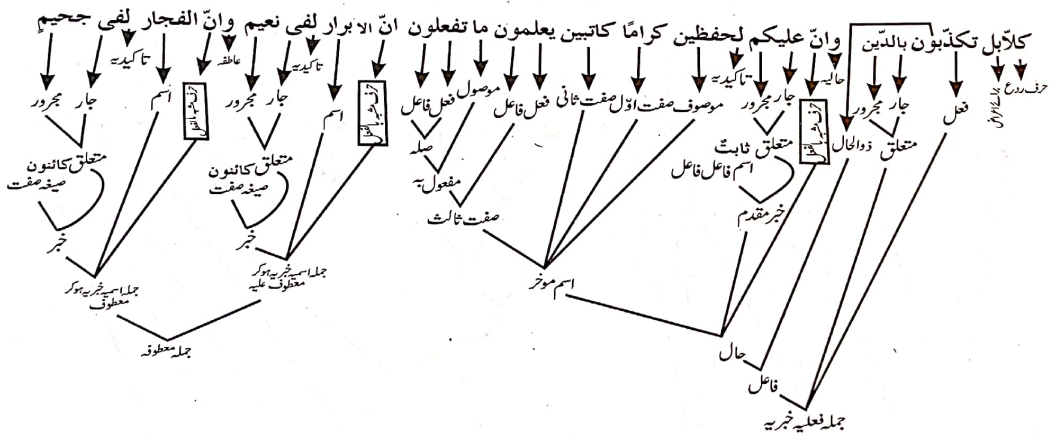 کلّابل تکذّبون بالدّین وانّ علیکم لحفظین کرامًا کاتبین یعلمون ما تفعلون انّ الابرار لفی نعیم وانّ الفجار لفی جحیمٍ
حرف ردع
فعل
جار
مجرور
متعلق
ذوالحال
حالیہ
حرف مشبہ بالفعل
جار
مجرور
متعلق ثابتٌ
اسم فاعل فاعل
خبر مقدم
تاکیدیہ
موصوف
صفت اوّل
صفت ثانی
فعل فاعل
موصول
فعل فاعل
صلہ
مفعول بہ
صفت ثالث
اسم موخر
حال
فاعل
جملہ فعلیہ خبریہ
حرف مشبہ بالفعل
اسم
تاکیدیہ
جار
مجرور
متعلق کائنون
صیغہ صفت
خبر
جملہ اسمیہ خبریہ ہوکر
معطوف علیہ
عاطفہ
حرف مشبہ بالفعل
اسم
تاکیدیہ
جار
مجرور
متعلق کائنون
صیغہ صفت
خبر
جملہ اسمیہ خبریہ ہوکر
معطوف
جملہ معطوفہ